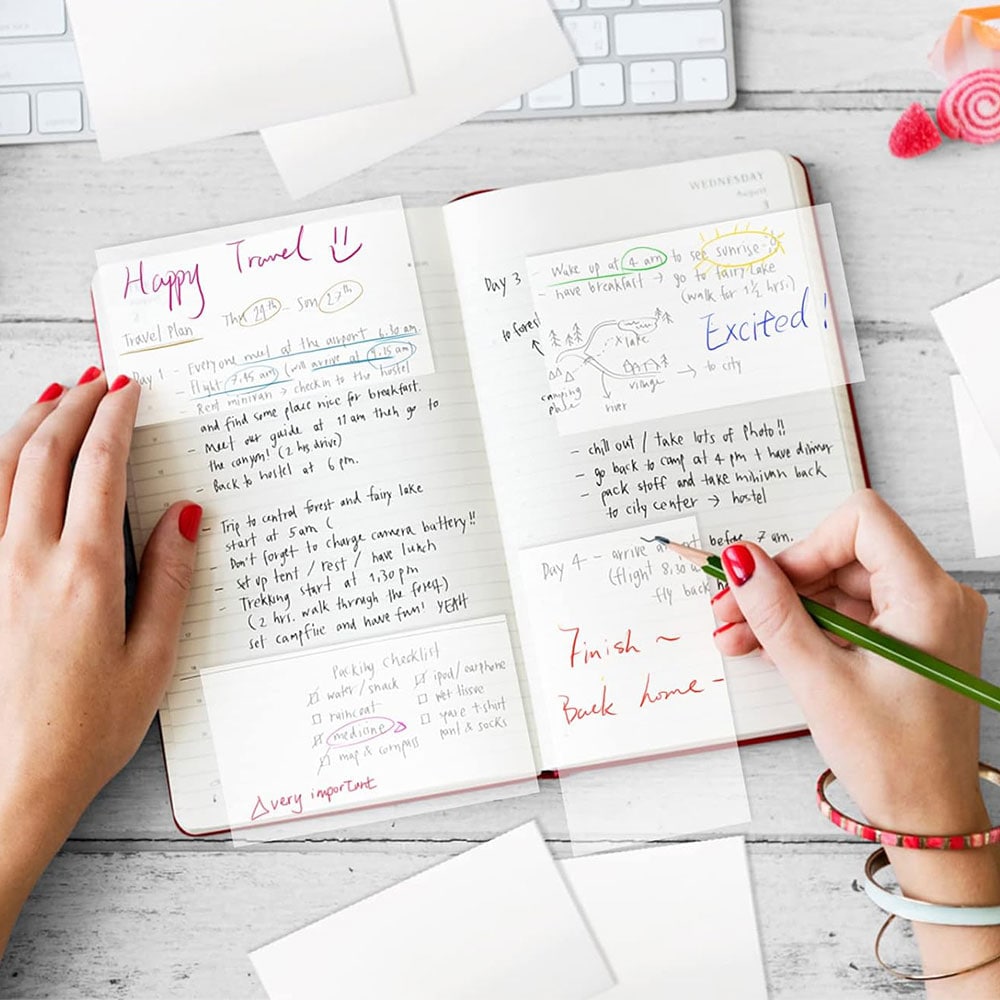 Happy Travel
Travel Plan
Thu 24th - Son 27th
Day 1 - Everyone meet at the airport 6.30 am
- Flight 7.45 am (will arrive at 9.15 am)
- Rent minivan → check in to the hostel
and find some place nice for breakfast.
- Meet our guide at 11 am then go to
the canyon! (2 hrs. drive)
- Back to hostel at 6 pm.
- Trip to central forest and fairy lake
start at 5 am (
- Don't forget to charge camera battery!!
- Set up tent / rest / have lunch
- Trekking start at 1,30 pm
(2 hrs. walk through the forest)
- set campfire and have fun! YEAH
Packing checklist
water / snack
raincoat
medicine
map & compass
ipod / earphone
wet tissue
spare t-shirt
pant & socks
very important
WEDNESDAY
August
1
Day 3
- Wake up at 4 am to see sunrise
- have breakfast → go to fairy lake
(walk for 1 1/2 hrs.)
Excited!
to forest
lake
village
→ to city
camping
place
river
- chill out / take lots of photo!!
- go back to camp at 4 pm & have dinner
- pack stoff and take minivan back
to city center → hostel
Day 4 - arrive a before 7 am.
(flight 8,30 a
fly back h
Finish ~
Back home -